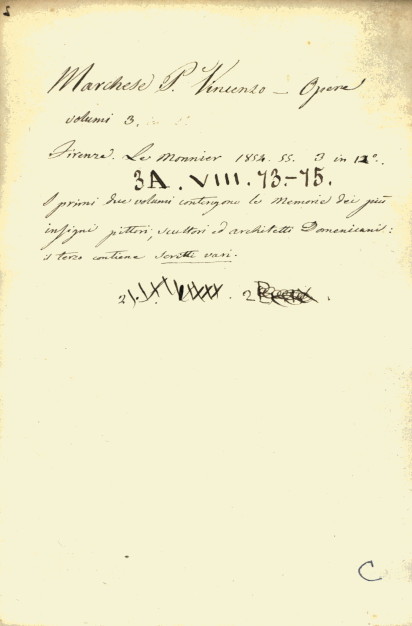 Marchese P. Vincenzo – Opere
volumi 3.
Firenze. Le Monnier 1854. 55. 3 in 12°.
3A. VIII. 73.–75.
I primi due volumi contengono le Memorie dei più
insigni pittori, scultori ed architetti Domenicani:
il terzo contiene scritti vari.
C